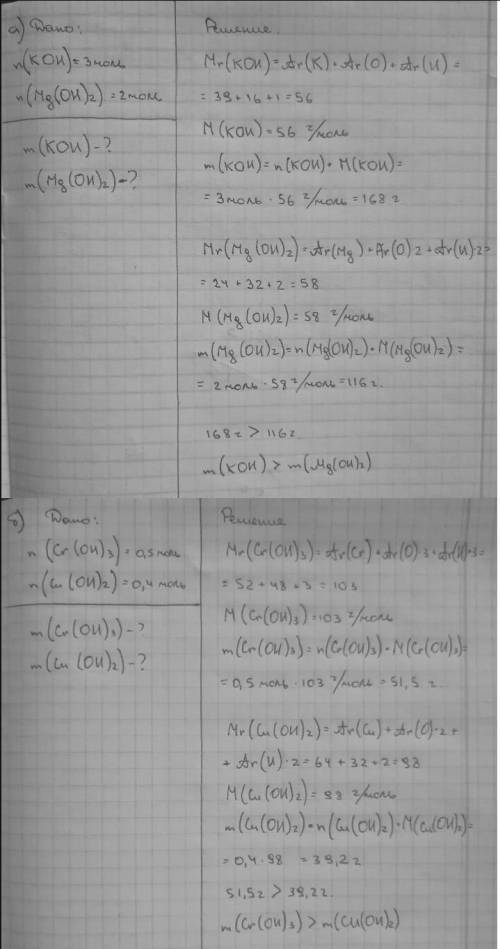 а) Дано:
n(KOH)=3моль
n(Mg(OH)2)=2моль
m(KOH)-?
m(Mg(OH)2)-?
Решение.
Mr(KOH)=Ar(K)+Ar(O)+Ar(H)=
=39+16+1=56
M(KOH)=56 г/моль
m(KOH)=n(KOH)•M(KOH)=
=3моль·56 г/моль=168 г
Mr(Mg(OH)2)=Ar(Mg)+Ar(O)·2+Ar(H)·2=
=24+32+2=58
M(Mg(OH)2)=58 г/моль
m(Mg(OH)2)=n(Mg(OH)2)•M(Mg(OH)2)=
=2моль·58г/моль=116г.
168г>116г
m(KOH)>m(Mg(OH)2)
б) Дано:
n(Cr(OH)3)=0,5моль
n(Cu(OH)2)=0,4моль
m(Cr(OH)3)-?
m(Cu(OH)2)-?
Решение
Mr(Cr(OH)3)=Ar(Cr)+Ar(O)·3+Ar(H)·3=
=52+48+3=103
M(Cr(OH)3)=103 г/моль
m(Cr(OH)3)=n(Cr(OH)3)•M(Cr(OH)3)=
=0,5моль·103 г/моль=51,5 г.
Mr(Cu(OH)2)=Ar(Cu)+Ar(O)·2+
+Ar(H)·2=64+32+2=98
M(Cu(OH)2)=98 г/моль
m(Cu(OH)2)=n(Cu(OH)2)•M(Cu(OH)2)=
=0,4·98=39,2г
51,5г>39,2г.
m(Cr(OH)3)>m(Cu(OH)2)